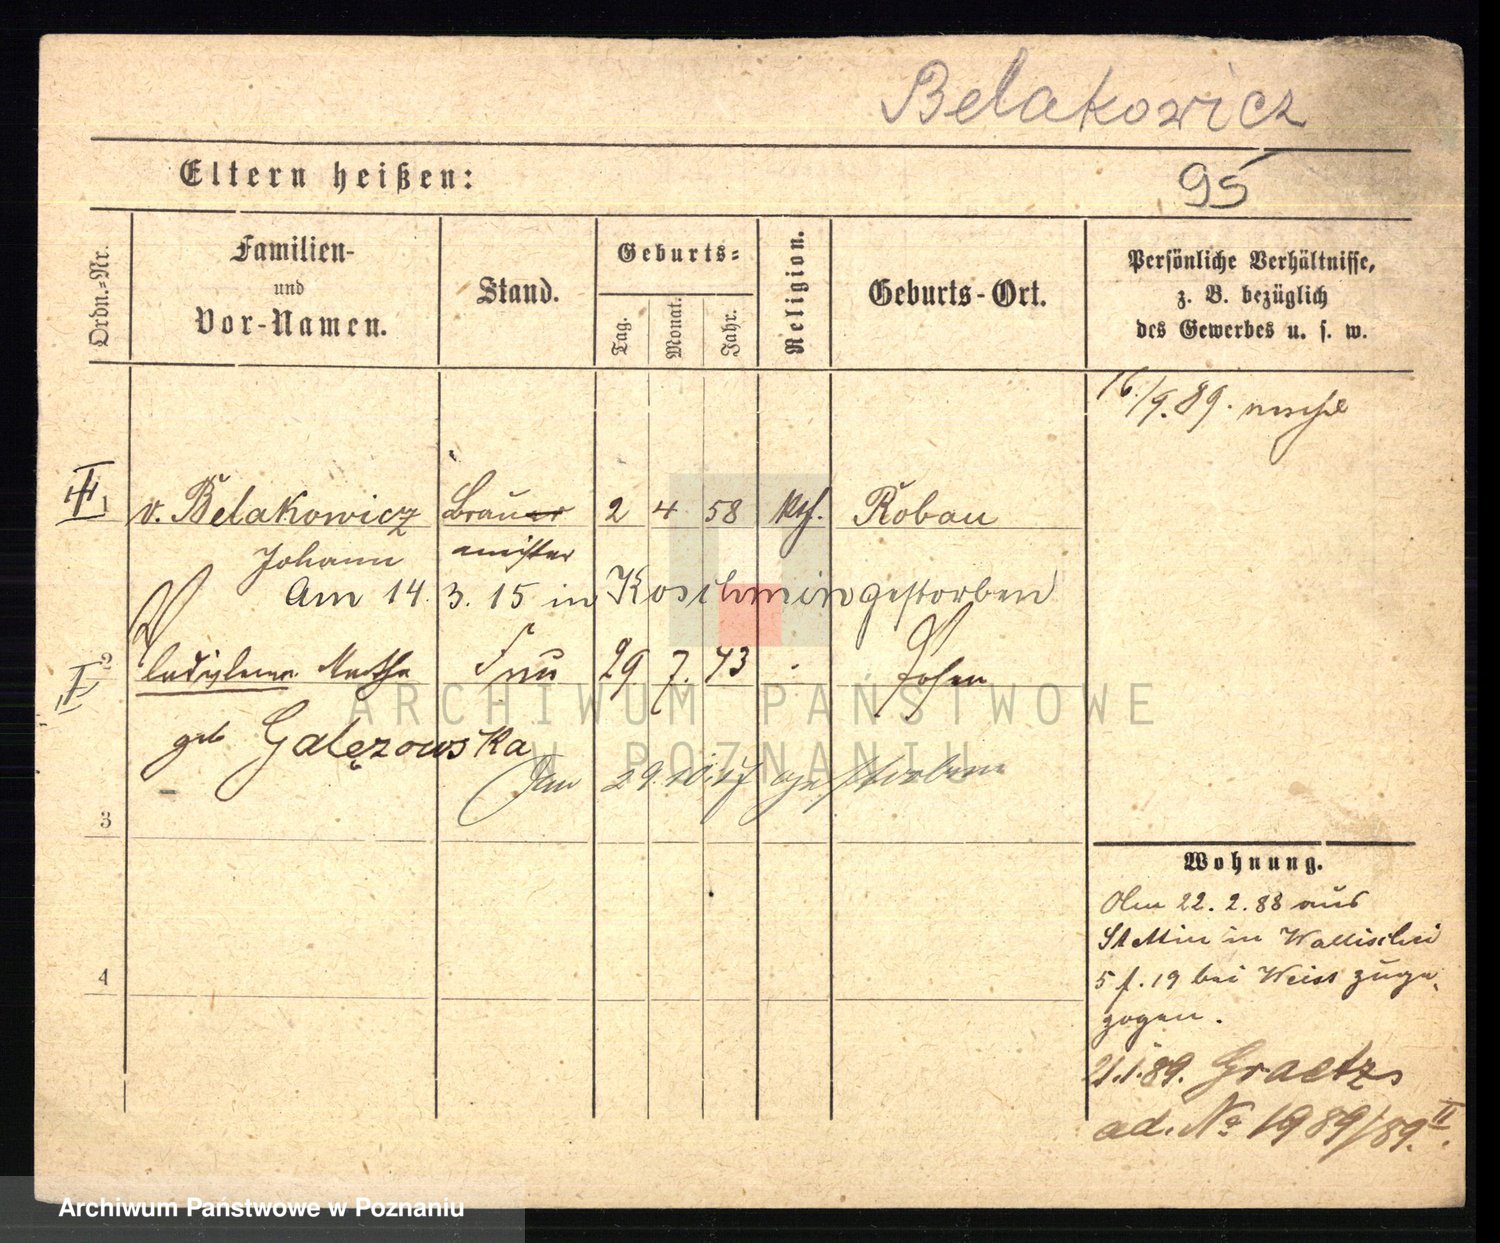 Belakowicz
Eltern heißen:
95
Ordn.-Nr.
Familien-
und
Vor-Namen.
Stand.
Geburts-
Tag.
Monat.
Jahr.
Religion.
Geburts-Ort.
Persönliche Verhältnisse,
z. B. bezüglich
des Gewerbes u. s. w.
16./9.89.
1 v. Belakowicz Brauer 2 4 58 kth. Robau
Johann meister
Am 14. 3. 15 in Koschmin gestorben
2 Martha Frau 29 7. Posen
geb Galęzowska
ARCHIWUM PAŃSTWOWE
W POZNANIU
Am 29.10. gestorben
3
4
Wohnung.
Am 22. 2. 88 aus
Stettin in Wallischei
5 f. 19 bei Weiss zuge-
zogen.
21.1.89. Graetz
ad. No 1989/89. II.
Archiwum Państwowe w Poznaniu